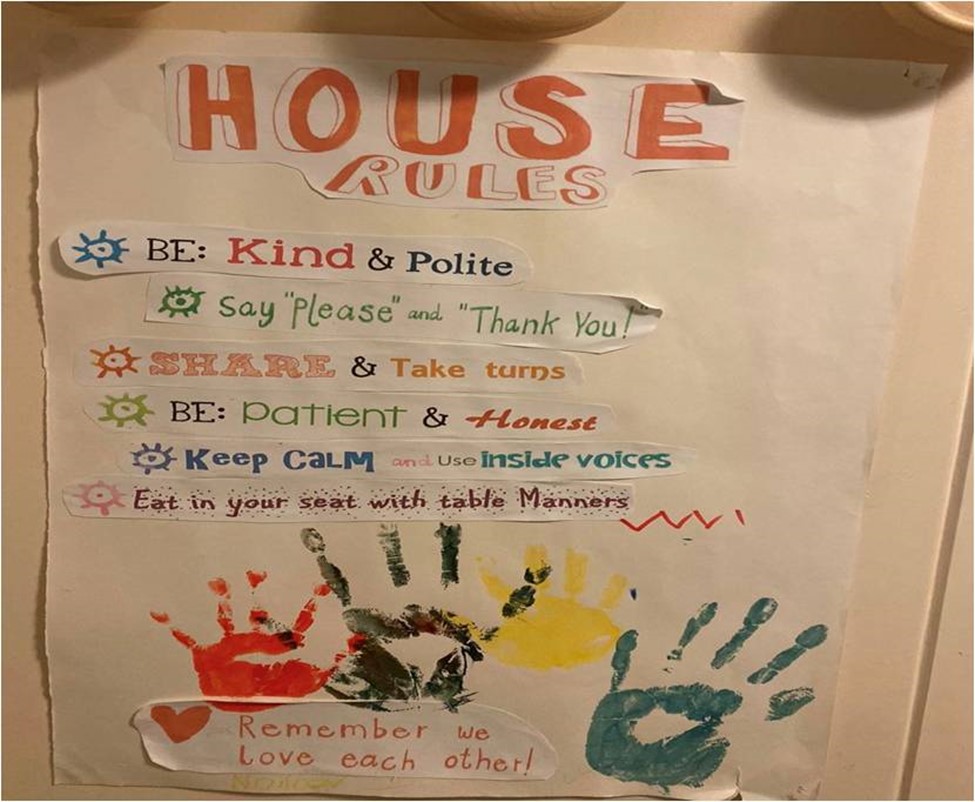 HOUSE
RULES
BE: Kind & Polite
Say "Please" and "Thank You!"
SHARE & Take turns
BE: Patient & Honest
Keep CALM and Use inside voices
Eat in your seat with table Manners
Remember we
Love each other!